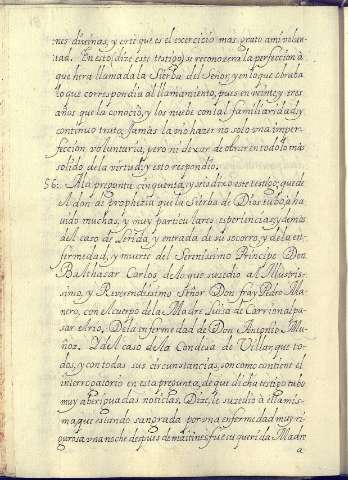 nes diuinas, y creì que es el exercicio mas grato a mi volun-
tad. En esto (dize este testigo) se reconozera la perfeccion à
que hera llamada la Sierba del Señor, y en lo que obraba
lo que correspondia al llamamiento, pues en veinte y tres
años que la conoció, y los nuebe con tal familiaridad, y
continuo trato, jamàs la vio hazer no solo vna imper-
feccion voluntaria, pero ni dexar de obrar en todo lo mas
solido de la virtud; y esto respondio.
56. A la pregunta cinquenta, y seis dixo este testigo, que de
el don de prophezia que la Sierba de Dios tubo, a ha
uido muchas, y muy particulares esperiencias, y demas
de el caso de Lerida, y entrada de su socorro, y de la en-
fermedad, y muerte del Serenissimo Principe Don
Balthasar Carlos de lo que suzedio al Illustris-
simo, y Reverendissimo Señor Don fray Pedro Ma-
nero, con el cuerpo de la Madre Luisa de Carrion al pa-
sar el rio. De la enfermedad de Don Antonio Mu-
ñoz. Y de el caso de la Condesa de Villar, que to-
dos, y con todas sus circunstancias, son como contiene el
interrogatorio en esta pregunta, de que dicho testigo tubo
muy aberiguadas noticias. Dize, le suzedio à ella mis-
ma que estando sangrada por vna enfermedad muy ri-
gurosa vna noche despues de maitines, fue su querida Madre
a